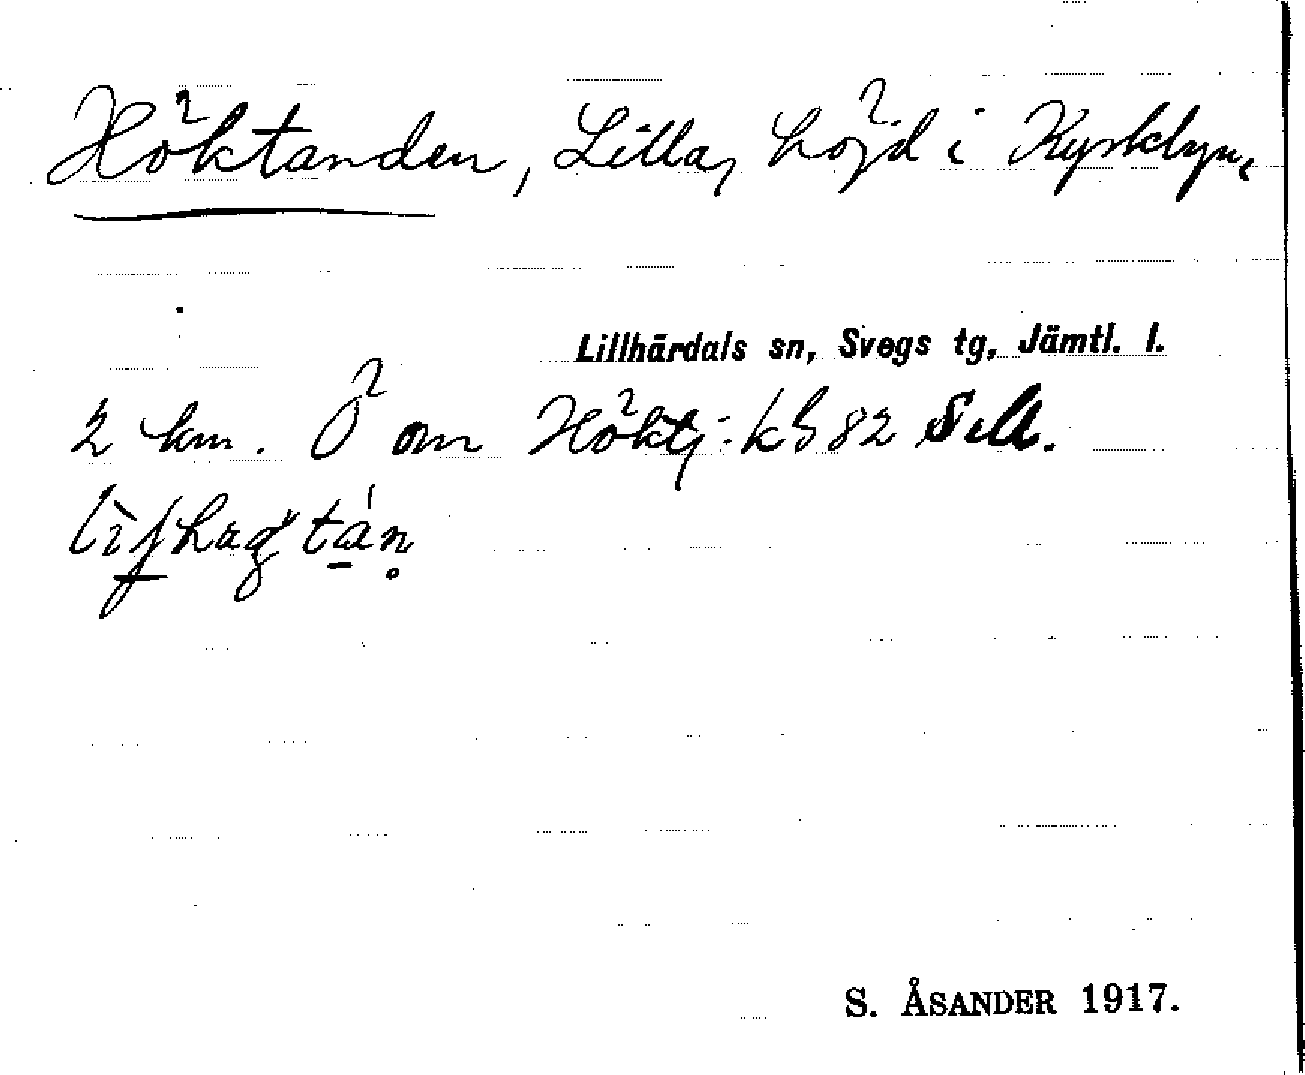 Höktanden, Lilla, höjd i Kyrkbyn.
Lillhärdals sn, Svegs tg, Jämtl. l.
2 km. Ö om Höktj: kb 82
S. ÅSANDER 1917.